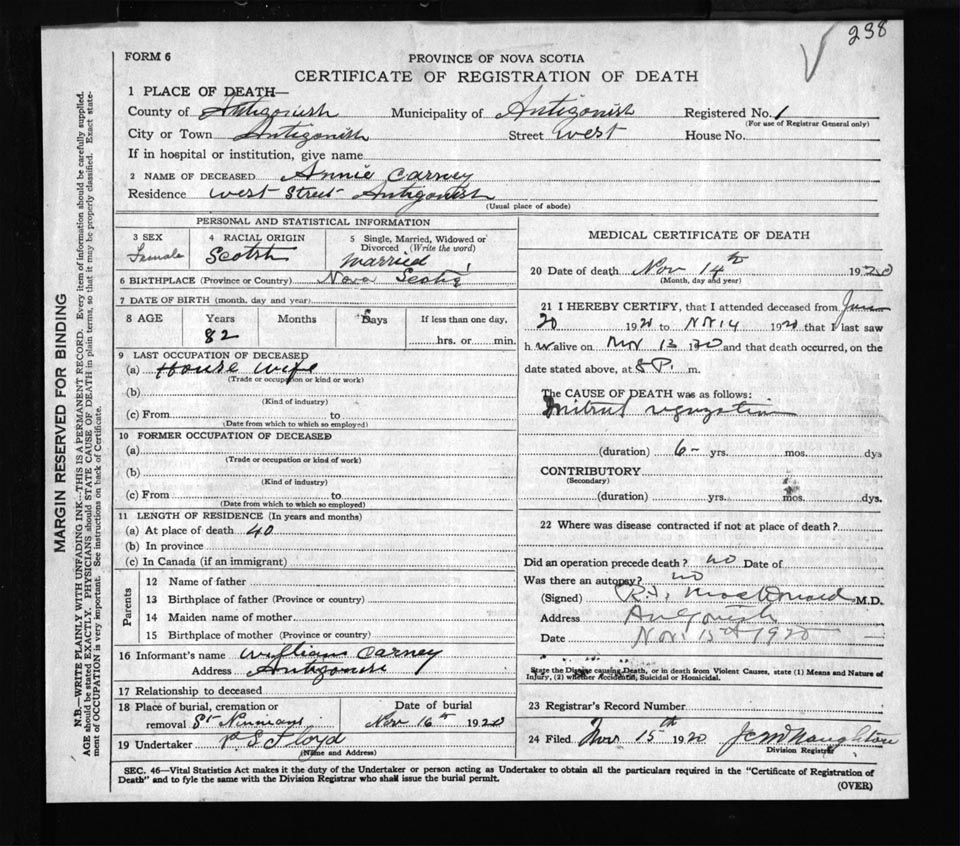 238
FORM 6
PROVINCE OF NOVA SCOTIA
CERTIFICATE OF REGISTRATION OF DEATH
1 PLACE OF DEATH—
County of Antigonish Municipality of Antigonish Registered No. 1
(For use of Registrar General only)
City or Town Antigonish Street West House No.
If in hospital or institution, give name
2 NAME OF DECEASED Annie Carney
Residence West Street Antigonish
(Usual place of abode)
PERSONAL AND STATISTICAL INFORMATION
3 SEX
Female
4 RACIAL ORIGIN
Scotsh
5 Single, Married, Widowed or
Divorced (Write the word)
Married
6 BIRTHPLACE (Province or Country) Nova Scotia
7 DATE OF BIRTH (month, day and year)
8 AGE Years Months Days If less than one day,
82 hrs. or min.
9 LAST OCCUPATION OF DECEASED
(a) House wife
(Trade or occupation or kind or work)
(b)
(Kind of industry)
(c) From to
(Date from which to which so employed)
10 FORMER OCCUPATION OF DECEASED
(a)
(Trade or occupation or kind of work)
(b)
(Kind of industry)
(c) From to
(Date from which to which so employed)
11 LENGTH OF RESIDENCE (In years and months)
(a) At place of death 40
(b) In province
(c) In Canada (if an immigrant)
Parents
12 Name of father
13 Birthplace of father (Province or country)
14 Maiden name of mother
15 Birthplace of mother (Province or country)
16 Informant's name William Carney
Address Antigonish
17 Relationship to deceased
18 Place of burial, cremation or
removal St Ninians
Date of burial
Nov 16th 1920
19 Undertaker P S Floyd
(Name and Address)
MEDICAL CERTIFICATE OF DEATH
20 Date of death Nov 14th 1920
(Month, day and year)
21 I HEREBY CERTIFY, that I attended deceased from June
20 1920 to Nov 14 1920 that I last saw
h alive on Nov 13 1920 and that death occurred, on the
date stated above, at 8 P. m.
The CAUSE OF DEATH was as follows:
Mitral
(duration) 6 yrs. mos. dys
CONTRIBUTORY
(Secondary)
(duration) yrs. mos. dys.
22 Where was disease contracted if not at place of death?
Did an operation precede death? no Date of
Was there an autopsy? no
(Signed) MacDonald M.D.
Address Antigonish
Date Nov. 15th 1920
State the Disease causing Death, or in death from Violent Causes, state (1) Means and Nature of
Injury, (2) whether Accidental, Suicidal or Homicidal.
23 Registrar's Record Number
24 Filed Nov 15th 1920
Division Registrar
SEC. 46—Vital Statistics Act makes it the duty of the Undertaker or person acting as Undertaker to obtain all the particulars required in the "Certificate of Registration of
Death" and to fyle the same with the Division Registrar who shall issue the burial permit.
(OVER)
MARGIN RESERVED FOR BINDING
N.B.—WRITE PLAINLY WITH UNFADING INK—THIS IS A PERMANENT RECORD. Every item of information should be carefully supplied.
AGE should be stated EXACTLY. PHYSICIANS should STATE CAUSE OF DEATH in plain terms, so that it may be properly classified. Exact state-
ment of OCCUPATION is very important. See instructions on back of Certificate.